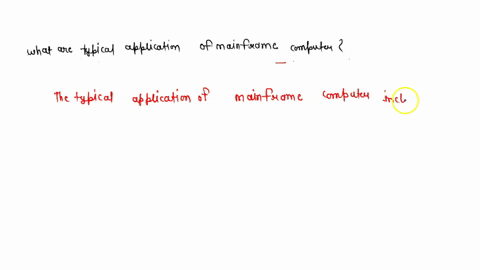 what are typical application of mainframe computer?
The typical application of mainframe computer incl